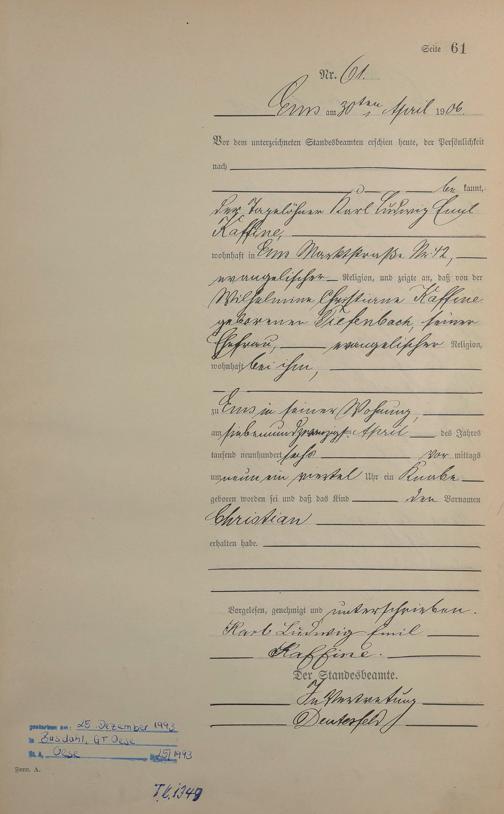 Seite 61
Nr. 61.
Ems am 30ten April 1906.
Vor dem unterzeichneten Standesbeamten erschien heute, der Persönlichkeit
nach
be kannt,
der Tagelöhner Karl Ludwig Emil
Kaffine,
wohnhaft in Ems Marktstraße Nr. 42,
evangelischer Religion, und zeigte an, daß von der
Wilhelmine Christiane Kaffine
geborenen Diefenbach, seiner
Ehefrau, evangelischer Religion,
wohnhaft bei ihm,
zu Ems in seiner Wohnung,
am siebenundzwanzigsten April des Jahres
tausend neunhundert sechs vor mittags
um neun ein viertel Uhr ein Knabe
geboren worden sei und daß das Kind den Vornamen
Christian
erhalten habe.
Vorgelesen, genehmigt und unterschrieben.
Karl Ludwig Emil
Kaffine.
Der Standesbeamte.
In Vertretung
gestorben am: 25. Dezember 1993
in
St. A. 1993
Form. A.